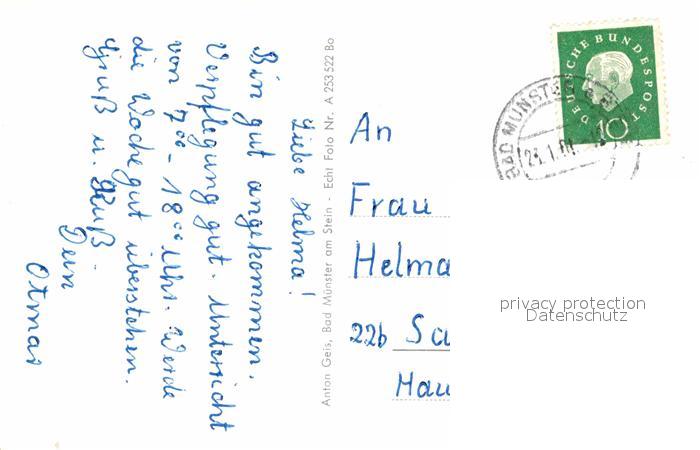 Liebe Helma!
Bin gut angekommen.
Verpflegung gut. Unterricht
von 7⁰⁰ - 18⁰⁰ Uhr. Werde
die Woche gut überstehen.
Gruß u. Kuß.
Dein
Otmar
Anton Geis, Bad Münster am Stein - Echt Foto Nr. A 253 522 Bo
An
Frau
Helma
22b Sa
Hau
DEUTSCHE BUNDESPOST
10
BAD MÜNSTER
privacy protection
Datenschutz